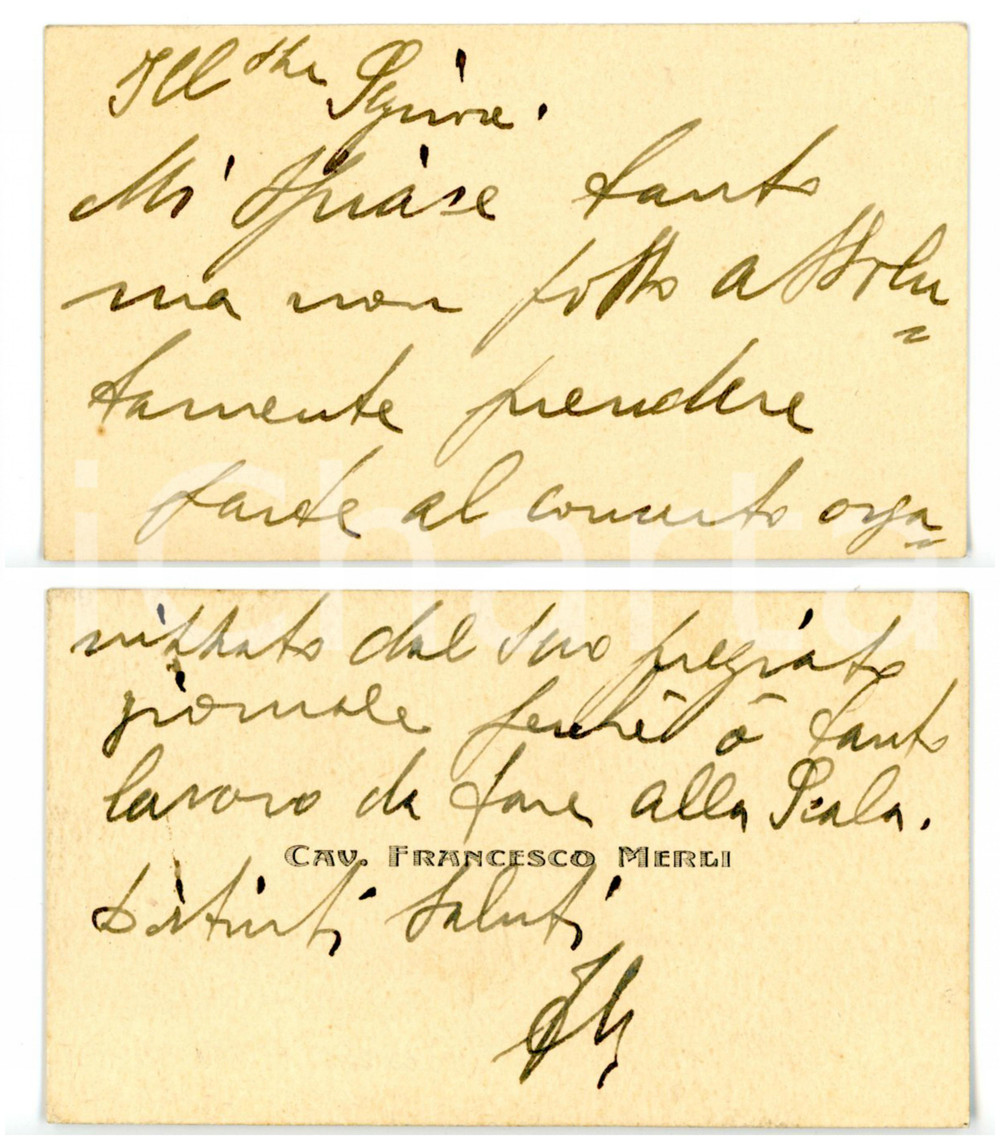 Ill.tre Signore.
Mi spiace tanto
ma non posso assolu=
tamente prendere
parte al concerto orga=
nizzato dal suo pregiato
giornale perchè ò tanto
lavoro da fare alla Scala.
CAV. FRANCESCO MERLI
Distinti saluti
iCharta